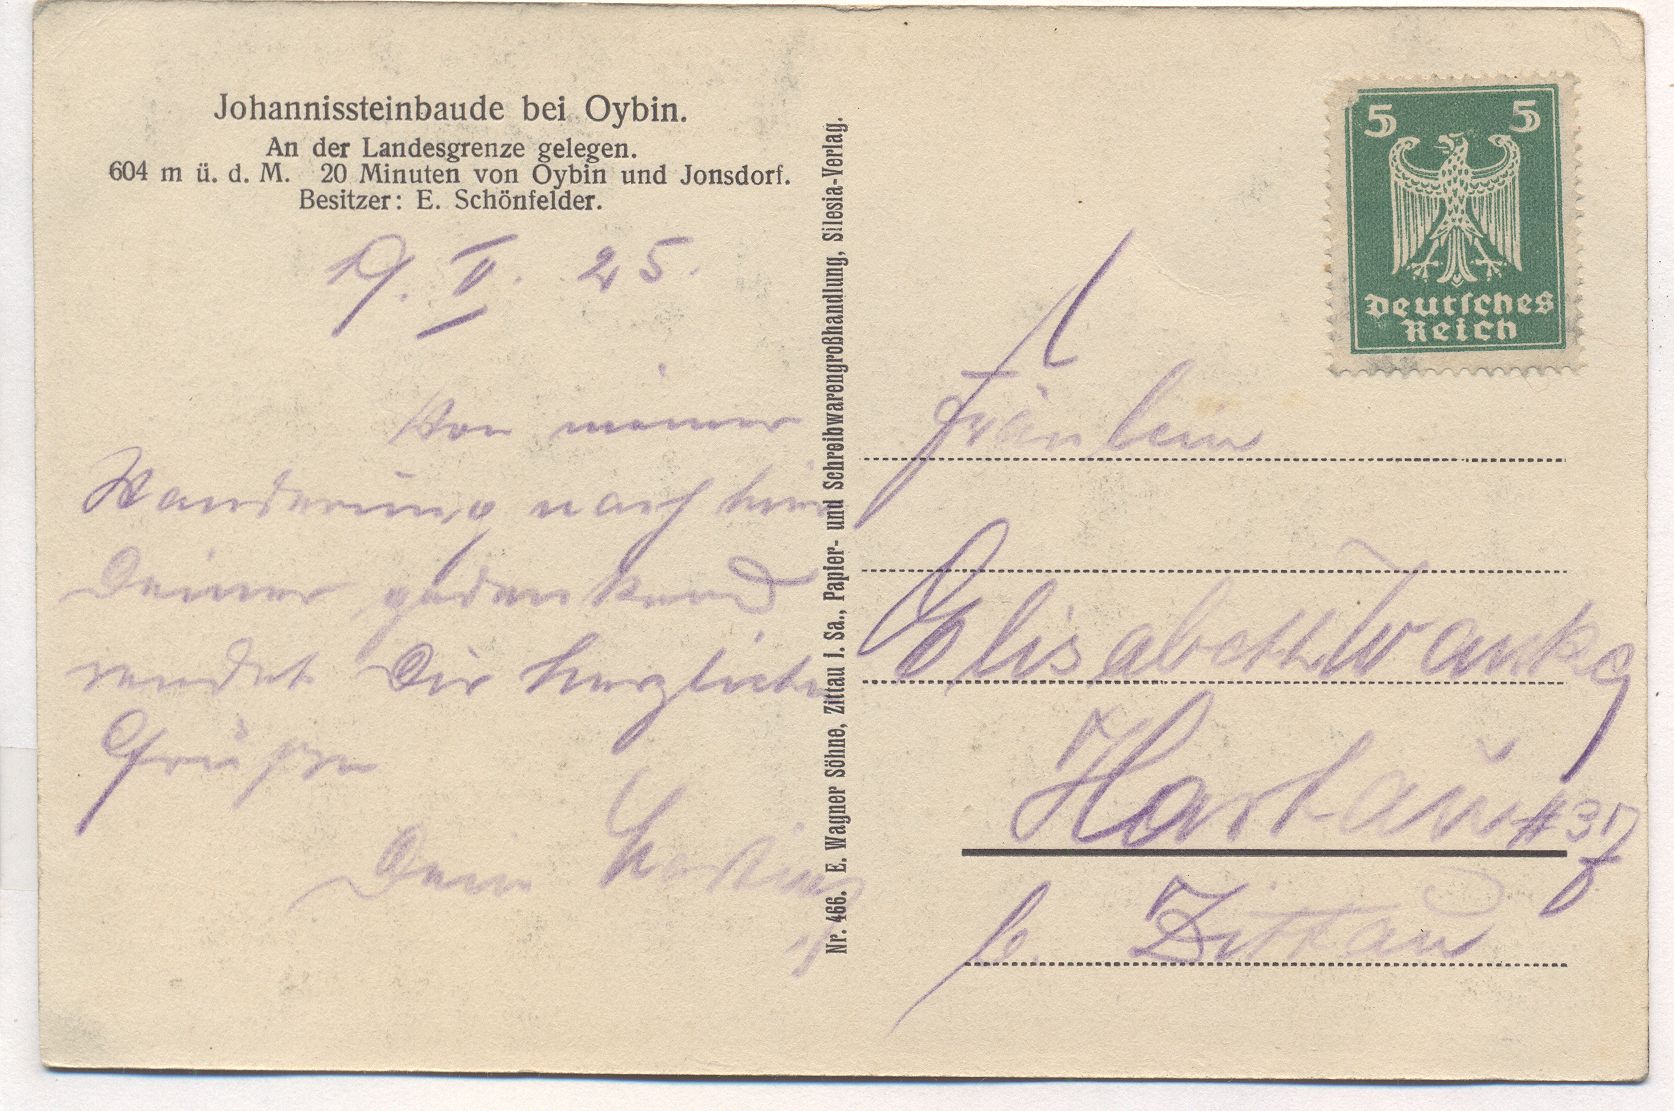 Johannissteinbaude bei Oybin.
An der Landesgrenze gelegen.
604 m ü. d. M. 20 Minuten von Oybin und Jonsdorf.
Besitzer: E. Schönfelder.
19. V. 25.
Von meiner
Wanderung nach hier
Deiner gedenkend
sendet Dir herzliche
Grüße
Dein
Nr. 466. E. Wagner Söhne, Zittau i. Sa., Papier- und Schreibwarengroßhandlung, Silesia-Verlag.
5 5
Deutsches
Reich
Fräulein
Elisabeth Wanke
Hartau # 37
b. Zittau